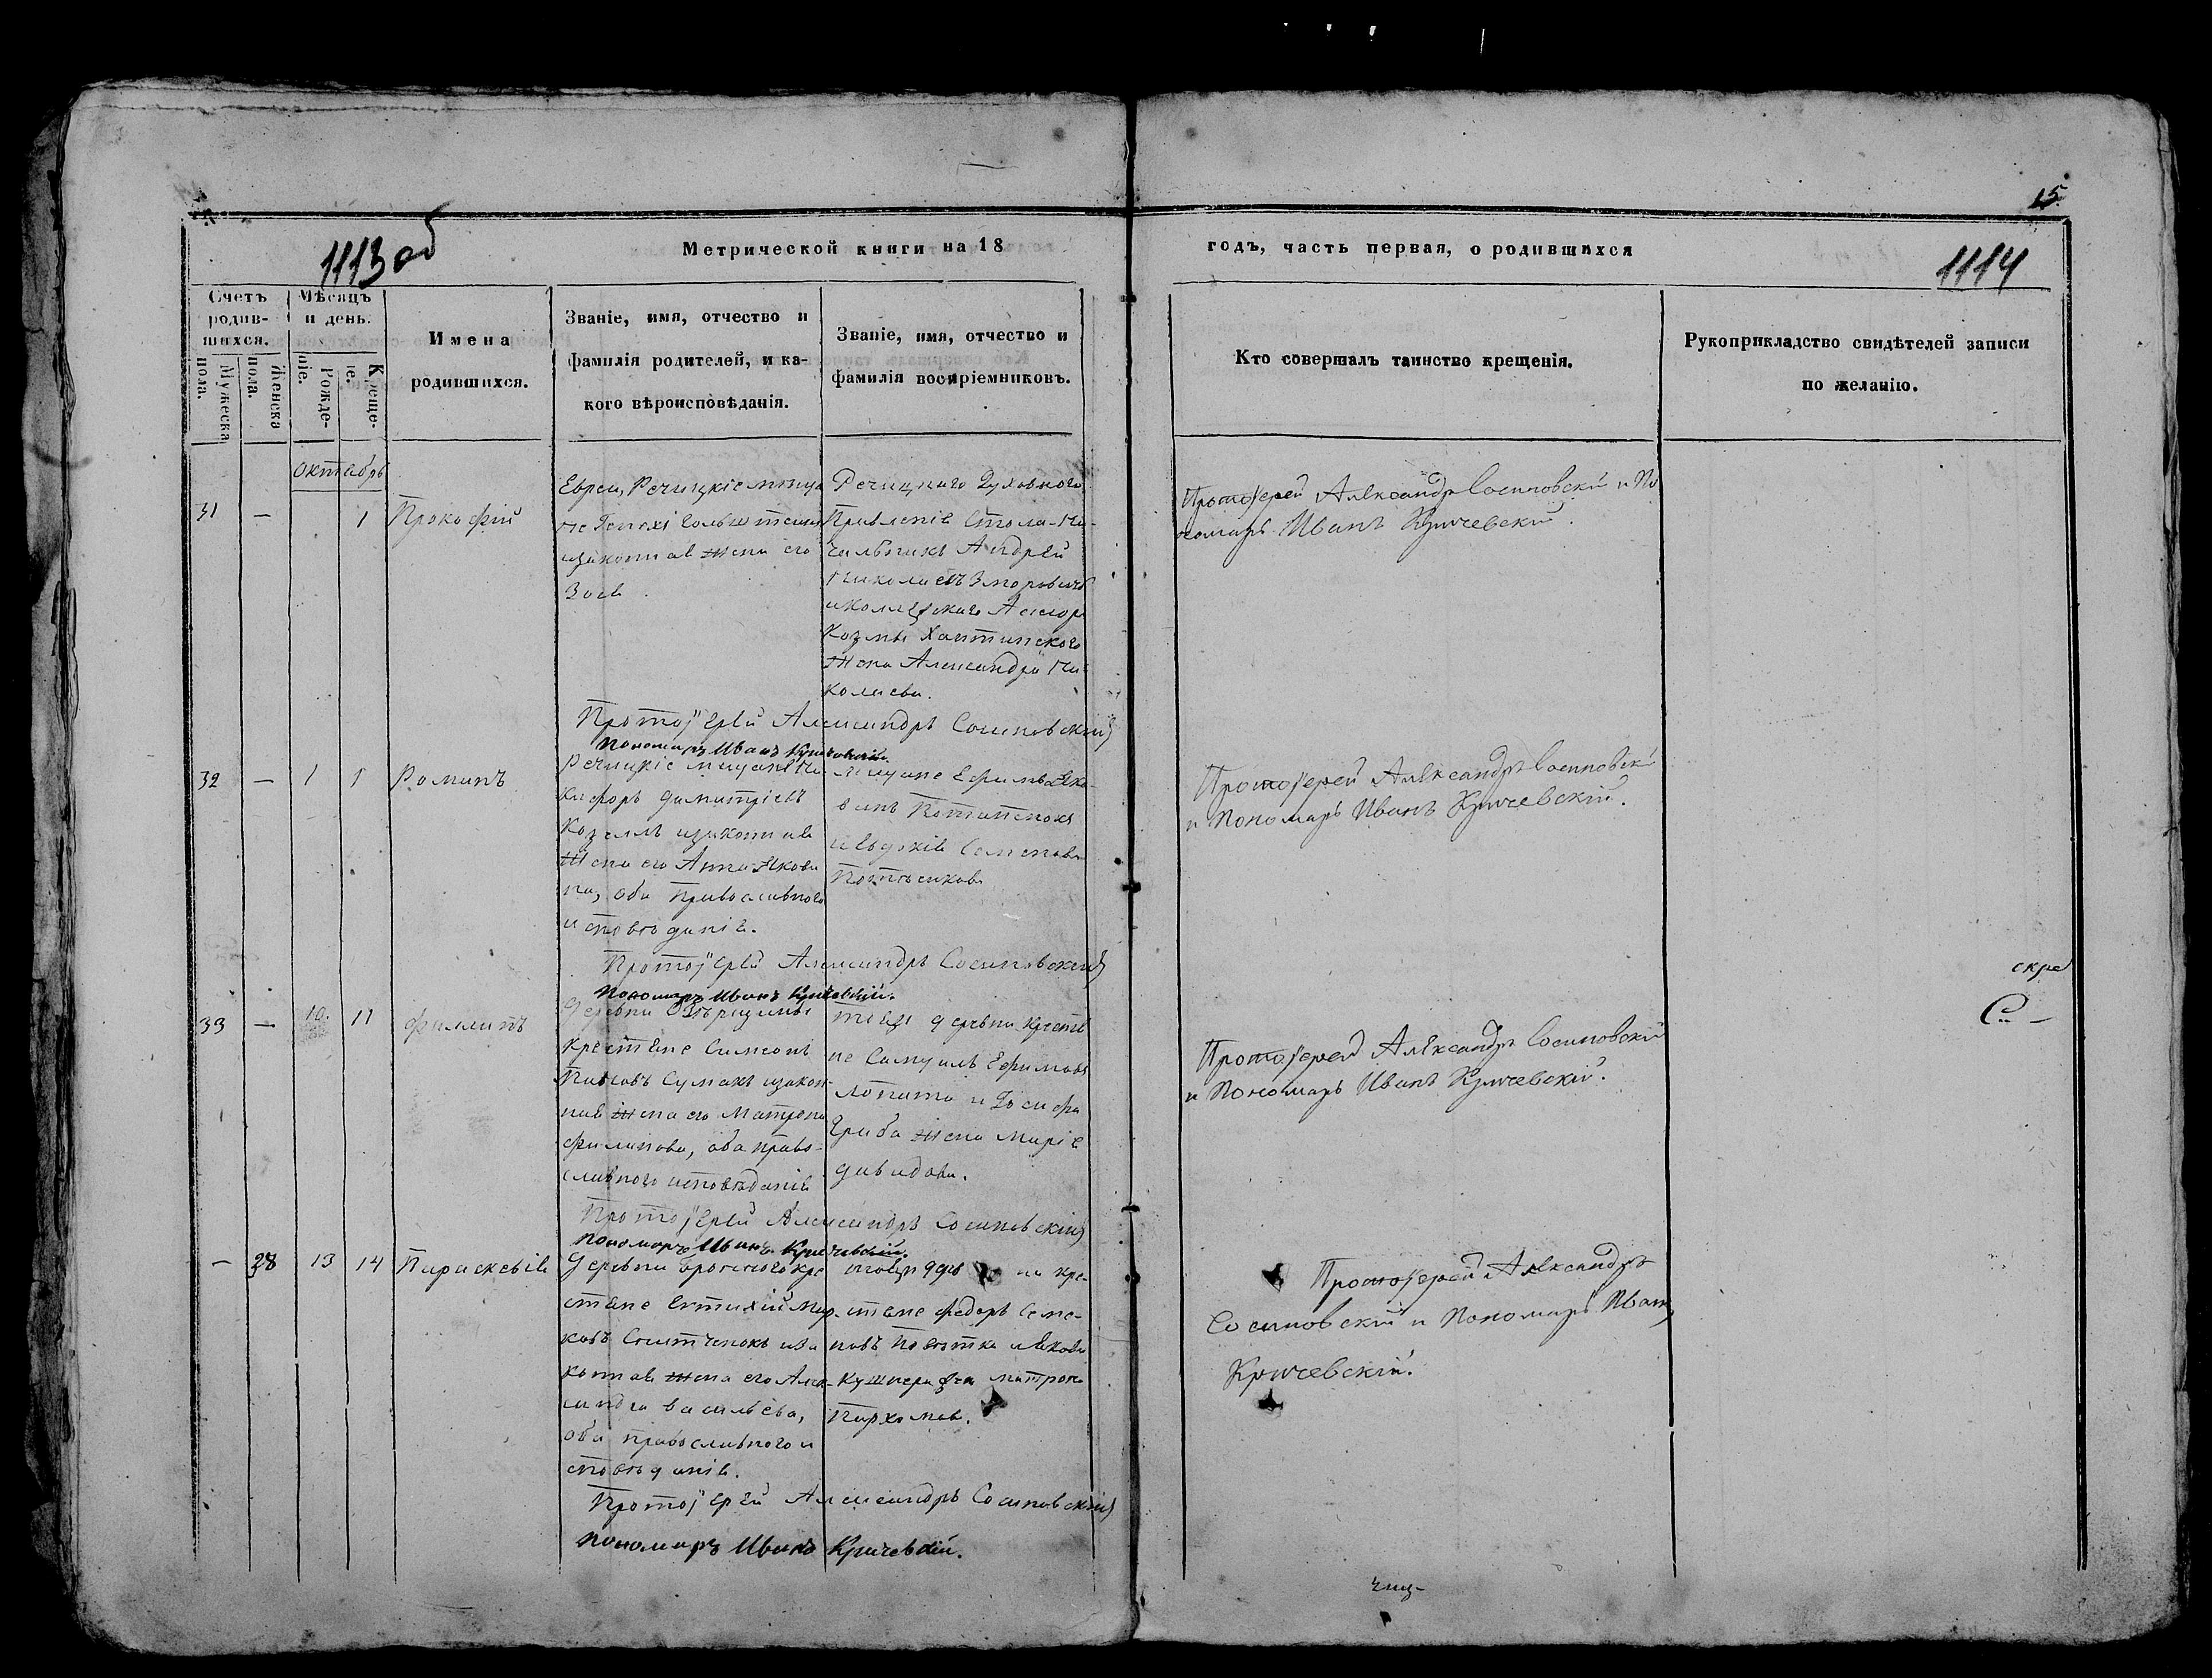 15
1113 об
Метрической книги на 18
годъ, часть первая, о родившихся
1114
Счетъ родив-шихся.
Мужеска пола.
Женска пола.
Мѣсяцъ и день.
Рожде-ніе.
Креще-
Имена
родившихся.
Званіе, имя, отчество и
фамилія родителей, и ка-
кого вѣроисповѣданія.
Званіе, имя, отчество и
фамилія воспріемниковъ.
Кто совершалъ таинство крещенія.
Рукоприкладство свидѣтелей записи
по желанію.
Октябрь
31 — 1 Прокофій
Евреи, Речицкіе
жена его
Зоя
Речицкаго Духовнаго
Правленія Стола-На-
чальникъ Андрей
Николаевъ
Козмы
жена Александра Ни-
колаева.
Протоіерей Александръ Сосиновскій и По
номарь Иванъ Кричевскій.
Протоіерей Александръ Сосиновскій
Пономарь Иванъ Кричевскій.
32 — 1 1 Романъ
Речицкіе мещане Ни
кифоръ Димитріевъ
Козелъ изаконная
жена его Анна Якова
на, оба Православного
исповѣданія.
мещане Ефимъ Яко-
и Евдокія Семенова
Протоіерей Александръ Сосиновскі
и Пономарь Иванъ Кричевскій.
Протоіерей Александръ Сосиновскій
Пономарь Иванъ Кричевскій.
33 — 10. 11 Филипъ
Деревни
крестяне Симеонъ
Павловъ Сумакъ изакон-
ная жена его Матрена
Филипова, оба право-
славного исповѣданія
тоей деревни крестя
не Самуилъ Ефимовъ
Лопата и
Гриба жена Марія
Давидова.
Протоіерей Александръ Сосиновскій
и Пономарь Иванъ Кричевскій.
скре
С. —
Протоіерей Александръ Сосиновскій
Пономарь Иванъ Кричевскій.
— 28 13 14 Параскевія
Деревни кре
стяне Евтихій Мар-
ковъ иза
конная жена его Алек-
сандра Васильева,
оба православного и
сповѣданія.
тойже на кре-
стяне Федоръ Семе-
новъ и Якова
Кушнера Матрона
Пархомова.
Протоіерей Александръ
Сосиновскій и Пономарь Иванъ
Кричевскій.
Протоіерей Александръ Сосиновскій
Пономарь Иванъ Кричевскій.